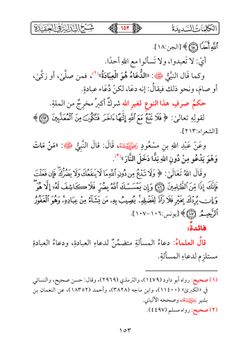 الكلمات السديدة ١٥٣ شرح البداية في العقيدة
اللَّهِ أَحَدًا ﴿١٨﴾ [الجن:١٨].
أيْ: لا تَعبدوا، ولا تَسألوا معَ اللهِ أحدًا.
وكما قال النبيُّ ﷺ: «الدُّعَاءُ هُوَ العِبَادَةُ»(١)، فمن صلَّى، أو زكَّى،
أو صامَ، ونحو ذلك فيقالُ: إنه دعَا، لكنْ دُعاءَ عبادةٍ.
حكمُ صرفِ هذا النوعِ لغيرِ الله شركٌ أكبرُ مخرجٌ من الملةِ.
لقولهِ تعالىٰ: ﴿فَلَا تَدْعُ مَعَ اللَّهِ إِلَٰهًا ءَاخَرَ فَتَكُونَ مِنَ الْمُعَذَّبِينَ ﴿٢١٣﴾﴾
[الشعراء:٢١٣].
وعَنْ عَبْدِ اللهِ بنِ مسْعُودٍ، قَالَ: قَالَ النبيُّ ﷺ: «مَنْ مَاتَ
وَهْوَ يَدْعُو مِنْ دُونِ اللهِ نِدًّا دَخَلَ النَّارَ»(٢).
وقال اللهُ تعَالَىٰ: ﴿وَلَا تَدْعُ مِن دُونِ اللَّهِ مَا لَا يَنفَعُكَ وَلَا يَضُرُّكَ فَإِن فَعَلْتَ
فَإِنَّكَ إِذًا مِّنَ الظَّالِمِينَ ﴿١٠٦﴾ وَإِن يَمْسَسْكَ اللَّهُ بِضُرٍّ فَلَا كَاشِفَ لَهُ إِلَّا هُوَ
وَإِن يُرِدْكَ بِخَيْرٍ فَلَا رَادَّ لِفَضْلِهِ يُصِيبُ بِهِ مَن يَشَاءُ مِنْ عِبَادِهِ وَهُوَ الْغَفُورُ
الرَّحِيمُ ﴿١٠٧﴾﴾ [يونس:١٠٦-١٠٧].
فائدة:
قالَ العلماءُ: دعاءُ المسألةِ متضمِّنٌ لدعاءِ العبادةِ، ودعاءُ العبادةِ
مستلزمٌ لدعاءِ المسألةِ.
(١) صحيح: رواه أبو داود (١٤٧٩)، والترمذي (٢٩٦٩)، وقال: حسن صحيح، والنسائي
في «الكبرى» (١١٤٠٠)، وابن ماجه (٣٨٢٨)، وأحمد (١٨٣٥٢)، عن النعمان بن
بشير، وصححه الألباني.
(٢) صحيح: رواه مسلم (٤٤٩٧).
١٥٣